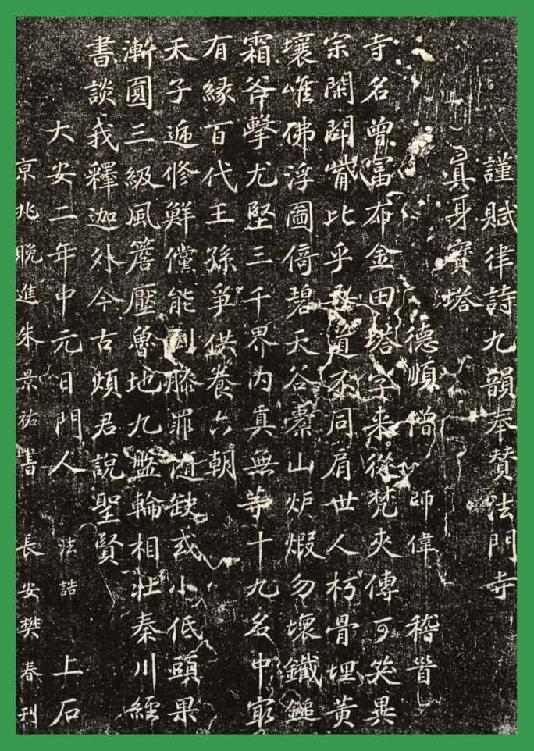 謹賦律詩九韻奉賛法門寺
眞身寶塔
德順僧 師偉 稽首
寺名曾富布金田塔字来從梵夾傳可笑異
宗閑鬪觜比乎吾道不同肩世人朽骨埋黄
壤唯佛浮圖倚碧天谷橐山炉煅勿壞鐵鎚
霜斧擊尤堅三千界内真無等十九名中㝡
有縁百代王孫爭供養六朝
天子逓修鮮儻能倒膝罪随缺或小低頭果
漸圓三級風簷壓魯地九盤輪相壯秦川經
書談我釋迦外今古煩君說聖賢
大安二年中元日門人 法誥 上石
京兆晚進朱景祐書 長安樊春刋